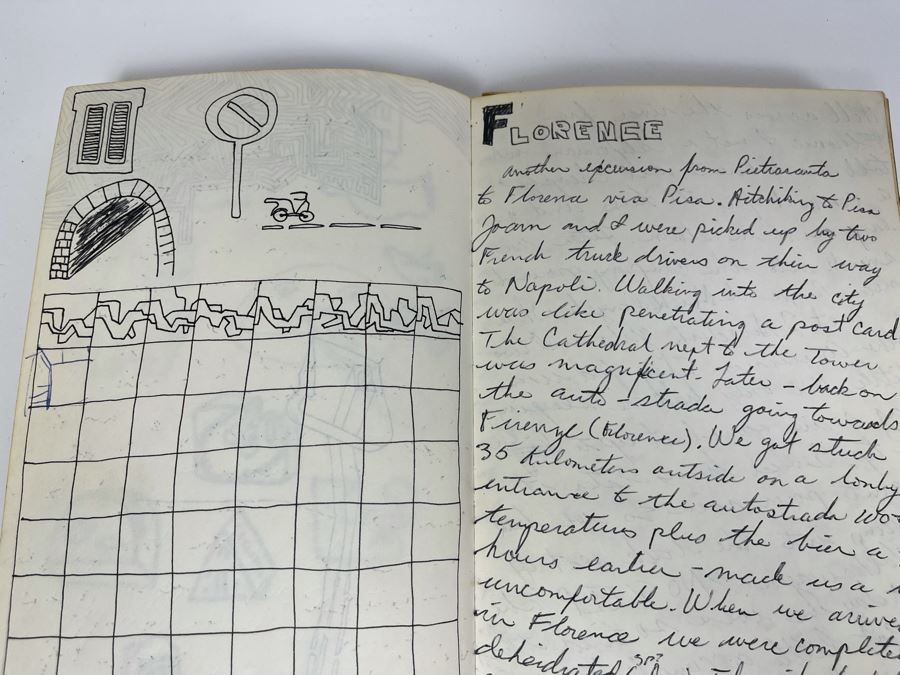 FLORENCE
another excursion from Pietrasanta
to Florence via Pisa. Hitchiking to Pisa
Joann and I were picked up by two
French truck drivers on their way
to Napoli. Walking into the city
was like penetrating a post card
The Cathedral next to the Tower
was magnificent. Later - back on
the auto-strada going towards
Firenze (Florence). We got stuck
35 kilometers outside on a lonly
entrance to the autostrada
temperatures plus the bier a
hours earlier - made us a
uncomfortable. When we arrive
in Florence we were complete
deheidrated (sp?)